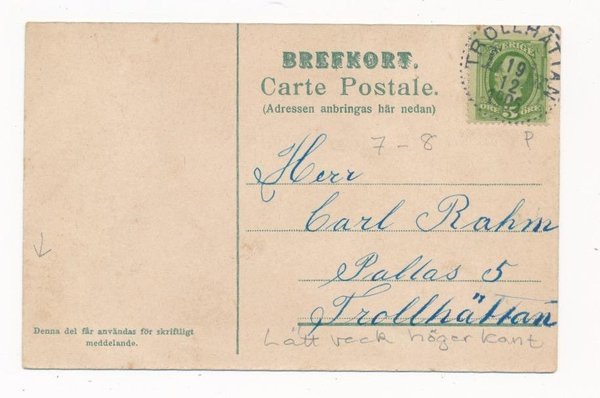 BREFKORT.
Carte Postale.
(Adressen anbringas här nedan)
TROLLHÄTTAN
SVERIGE
19
12
5
7-8
P
Herr
Carl Rahm
Pallas 5
Trollhättan
Lätt veck höger kant
Denna del får användas för skriftligt
meddelande.